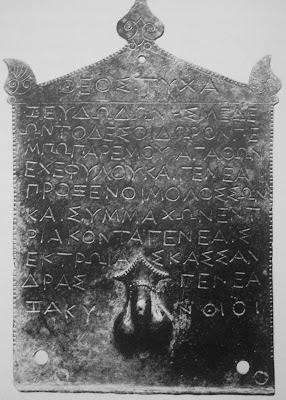 ΘΕΟΣΤΥΧΑ
ΖΕΥΔΩΔΩΝΗΣΜΕΔΕ
ΩΝΤΟΔΕΣΟΙΔΩΡΟΝΠΕ
ΜΠΩΠΑΡΕΜΟΥΑΓΑΘΩΝ
ΕΧΕΦΥΛΟΥΚΑΙΓΕΝΕΑ
ΠΡΟΞΕΝΟΙΜΟΛΟΣΣΩΝ
ΚΑΙΣΥΜΜΑΧΩΝΕΝΤ
ΡΙΑΚΟΝΤΑΓΕΝΕΑΙΣ
ΕΚΤΡΩΙΑΣΚΑΣΣΑΝ
ΔΡΑΣ ΓΕΝΕΑ
ΖΑΚΥ ΝΘΙΟΙ